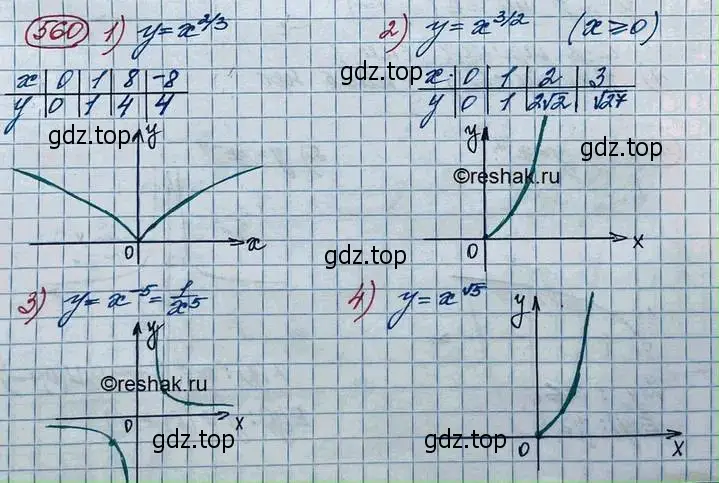 560 1) y = x^{2/3}
x | 0 | 1 | 8 | -8
y | 0 | 1 | 4 | 4
gdz.top
y
0
x
2) y = x^{3/2} (x ≥ 0)
gdz.top
x | 0 | 1 | 2 | 3
y | 0 | 1 | 2√2 | √27
gdz.top
y
©reshak.ru
0
x
gdz.top
3) y = x^{-5} = 1/x^5
y
©reshak.ru
0
x
gdz.top
4) y = x^{√5}
y
gdz.top
0
x